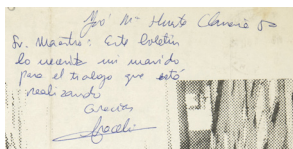 José Mª Huerto Claveria 50
Sr. Maestro: Este boletin
lo necesita mi marido
para el trabajo que está
realizando
Gracias
Araceli